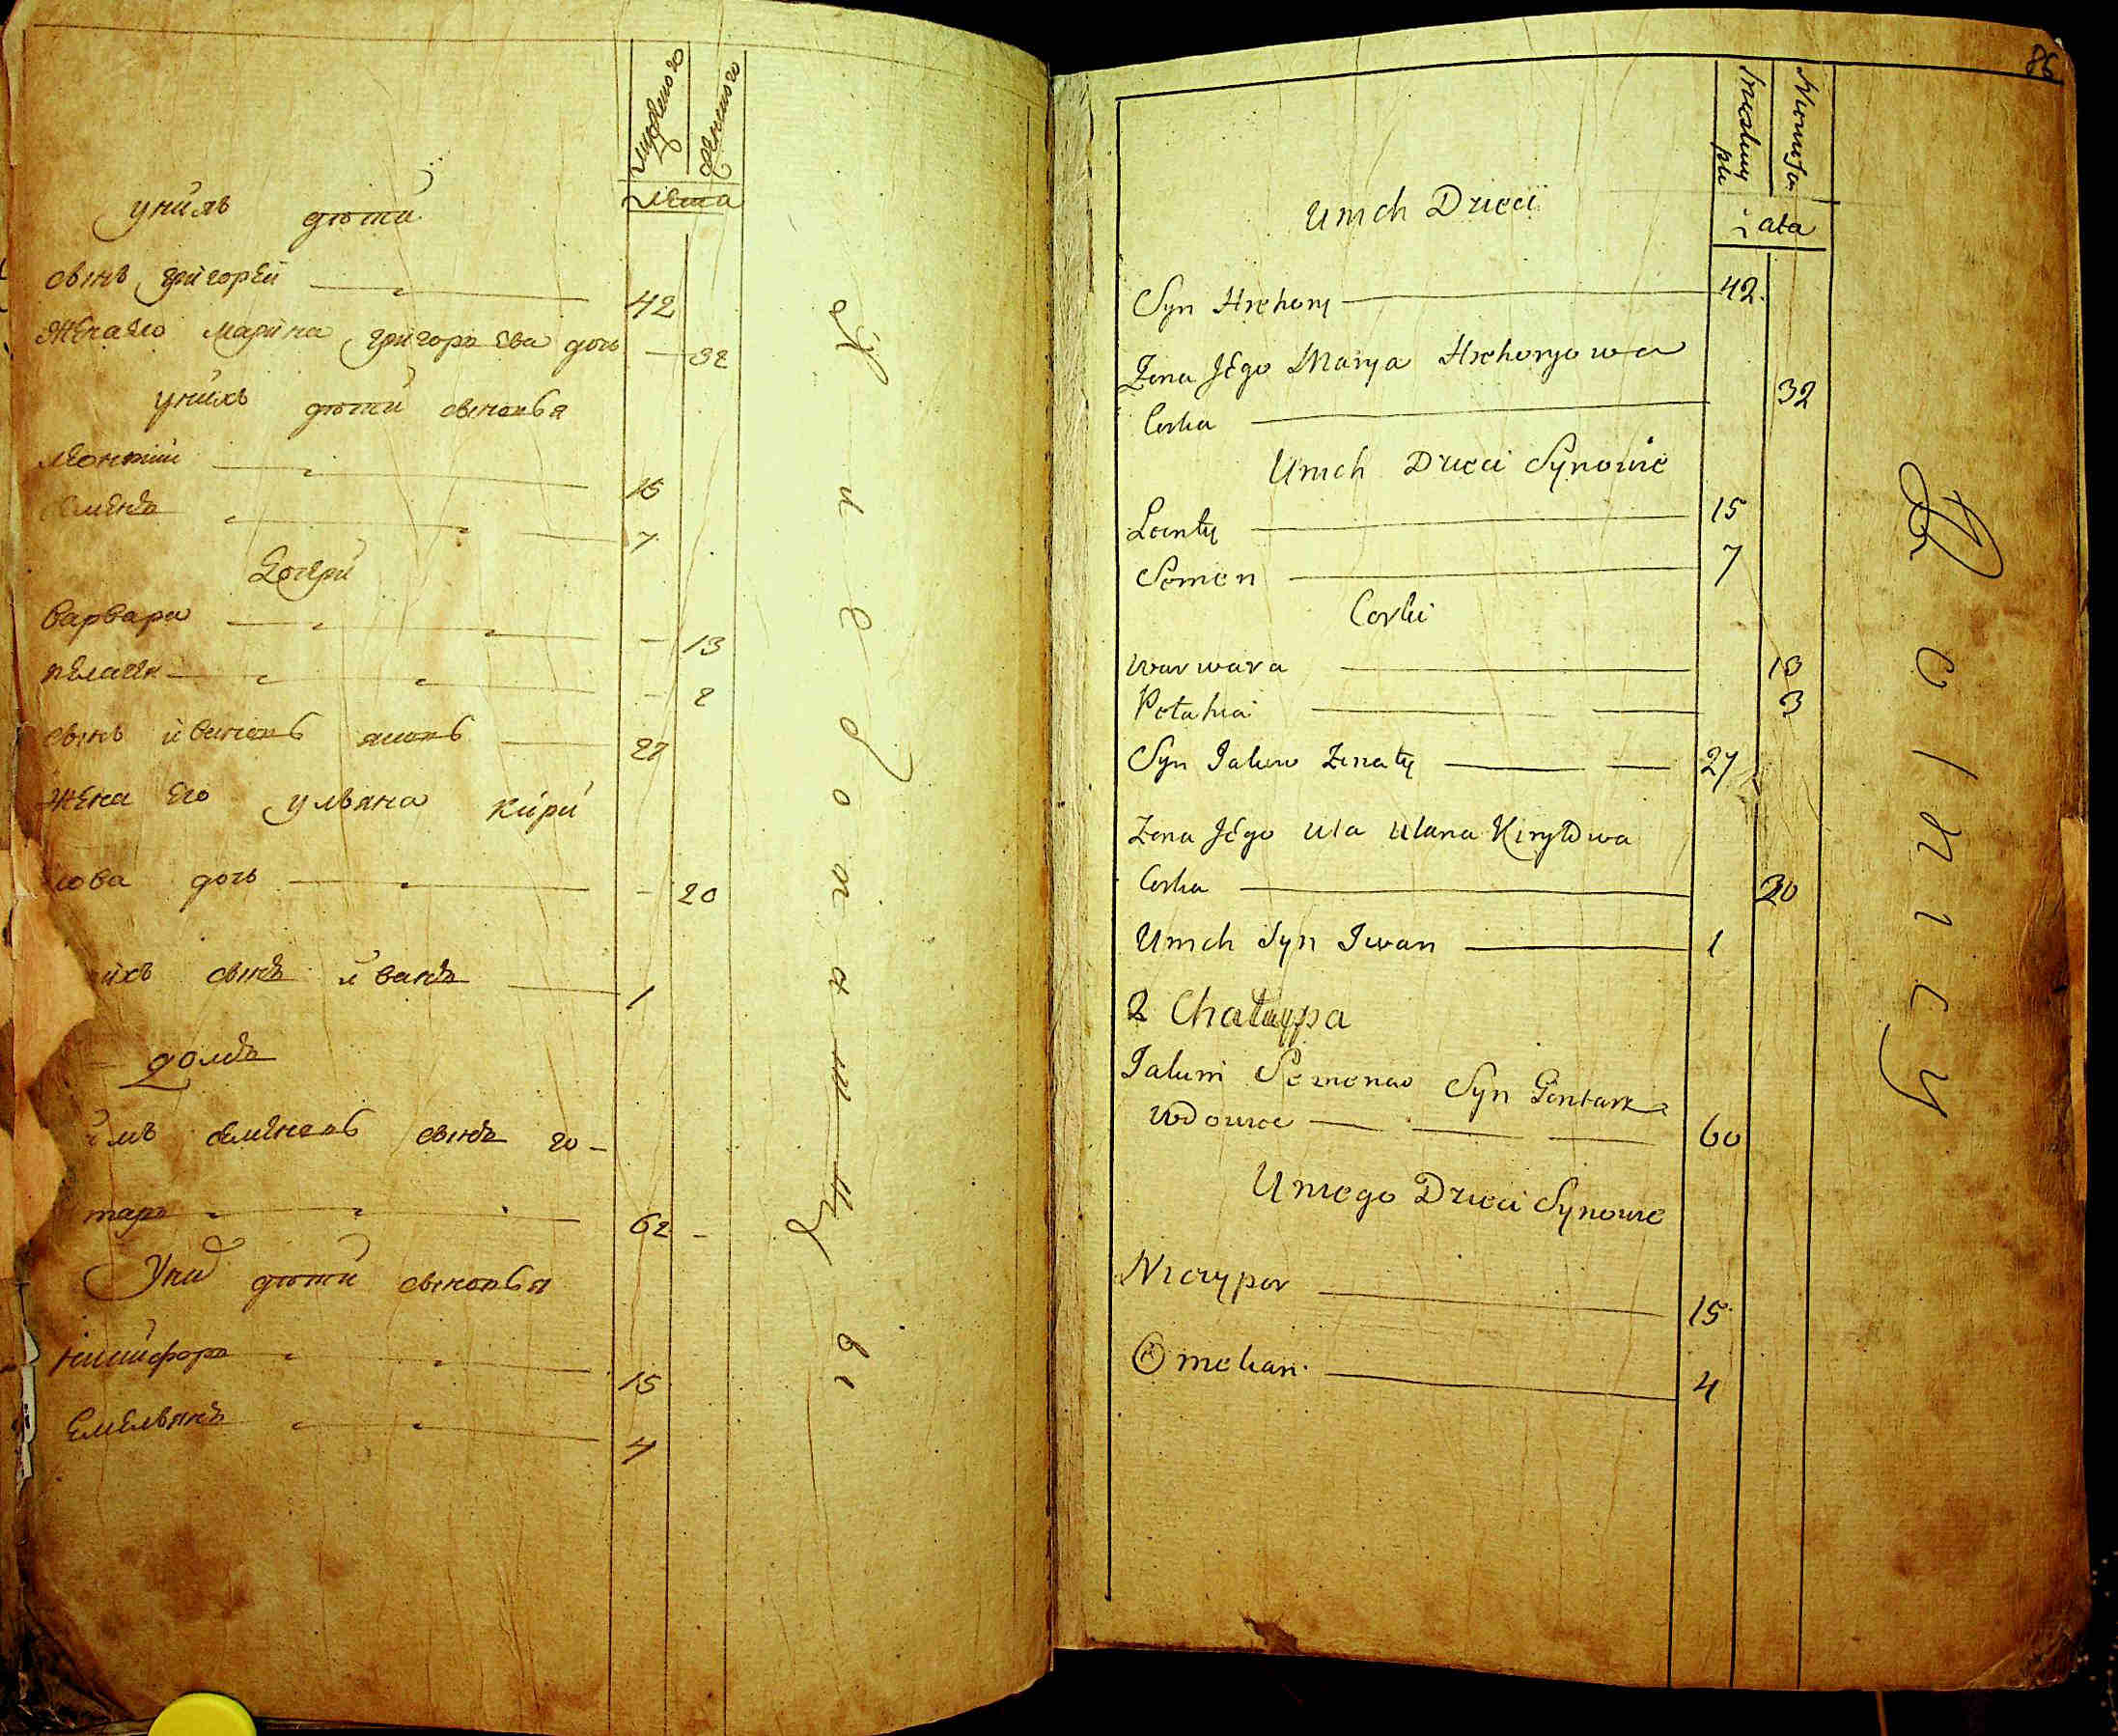 лета
у нихъ дѣти
сынъ григорей 42
жена его марина григорьева дочь 32
у нихъ дѣти сыновья
леонтий 15
семенъ 7
дочери
варвара 13
пелагея 2
27
жена его ульяна кири
лова дочь 20
ихъ сынъ иванъ 1
домъ
имъ семеновъ сынъ го-
таръ 62
дѣти сыновья
никифоръ 15
емельянъ 4
86
Lata
U nich Dzieci
Syn Hrehory 42
Zona Jego Marya Hrehoryowa
Corka 32
U nich Dzieci Synowie
Leonty 15
Semen 7
Corki
Warwara 13
Pelahia 3
Syn Jakow Zonaty 27
Zona Jego Ula Ulana Kiryłowa
Corka 20
U nich Syn Iwan 1
2 Chałuppa
Jakim Semenow Syn Gontarz
Wdowiec 60
U niego Dzieci Synowie
Niczypor 15
Omelian 4
Rolnicy